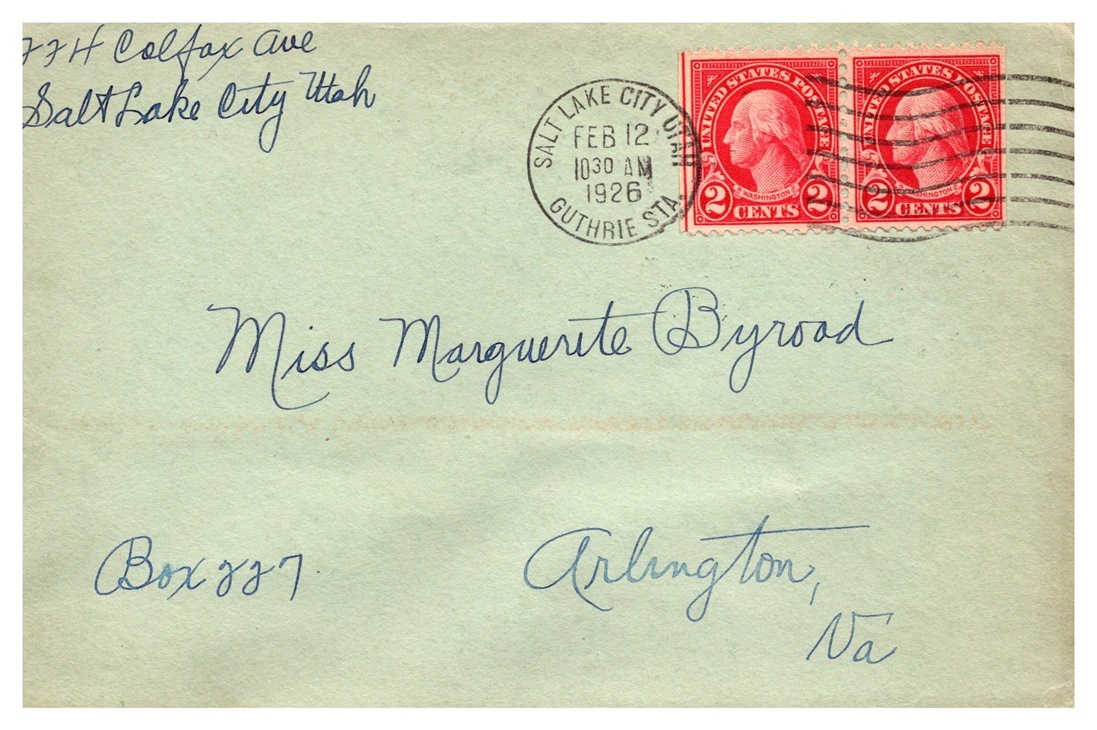 224 Colfax Ave
Salt Lake City Utah
SALT LAKE CITY UTAH
FEB 12
10 30 AM
1926
GUTHRIE STA.
UNITED STATES POSTAGE
WASHINGTON
2 CENTS 2
UNITED STATES POSTAGE
WASHINGTON
2 CENTS 2
Miss Marguerite Byroad
Box 227.
Arlington,
Va